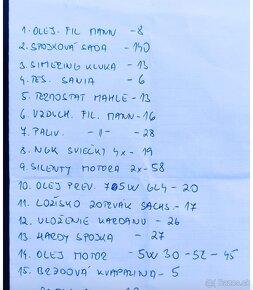 1. OLEJ. FIL MANN - 8
2. SPOJKOVÁ SADA - 140
3. SIMERING KLUKA - 13
4. TES. SANIA - 6
5. TERMOSTAT MAHLE - 13
6. VZDUCH. FIL. MANN - 16
7. PALIV. - 11 - - 28
8. NGK SVIEČKY 4x - 19
9. SILENTY MOTORA 2x - 58
10. OLEJ PREV. 75W GL4 - 20
11. LOŽISKO ZOTRVAK SACHS. - 17
12. ULOŽENIE KARDANU - 26
13. HARDY SPOJKA - 27
14. OLEJ MOTOR - 5W30 - 5L - 45
15. BRZDOVÁ KVAPALINA - 5